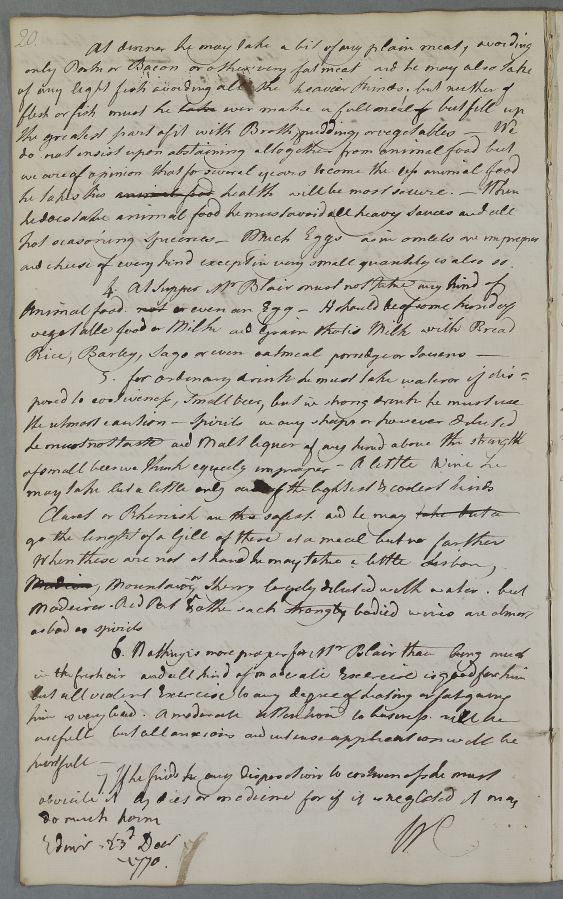 20.
At dinner he may take a bit of any plain meat, avoiding
only Pork or Bacon or other very fat meat and he may also take
of any light fish avoiding all the heavier kinds, but neither of
flesh or fish must he take ever make a full meal of but fill up
the greatest part of it with Broth, pudding, or vegetables – We
do not insist upon abstaining altogether from animal food but
we are of opinion that for several years to come the less animal food
he takes his animal food health will be most secure. – When
he does take animal food he must avoid all heavy sauces and all
hot seasoning spiceries – Much Eggs as in omlets are improper
and cheese of every kind except in very small quantity is also so.
4. At supper Mr Blair must not take any kind of
Animal food. not or even an Egg – It should be of some kind of
vegetable food or Milk and Grain that is Milk with Bread
Rice, Barley, Sago or even oatmeal porridge or Sowens –
5. for ordinary drink he must take water or if dis=
posed to costiveness, small beer, but in strong drink he must use
the utmost caution – Spirits in any shape or however diluted
he must not taste and Malt liquor of any kind above the strength
of small beer we think equally improper – A little Wine he
may take but a little only and of the lightest & coolest kinds
Claret or Rhenish are the safest and he may take but a
go the lenght of a Gill of these at a meal but no farther
When these are not at hand he may take a little Lisbon,
Madeira, Mountain, or Sherry largely diluted with water. but
Madeira Red Port & other such strongly bodied wines are almost
as bad as spirits
6. Nothing is more proper for Mr Blair than being much
in the fresh air and all kind of moderate Exercise is good for him
but all violent Exercise to any degree of heating or fatiguing
him is very bad. A moderate attention to business will be
usefull but all anxious and intense application will be
hurtfull –
7 If he finds any disposition to costiveness he must
obviate it by diet or medicine for if it is neglected it may
do much harm
Edinr 23d Decr
1770.
WC